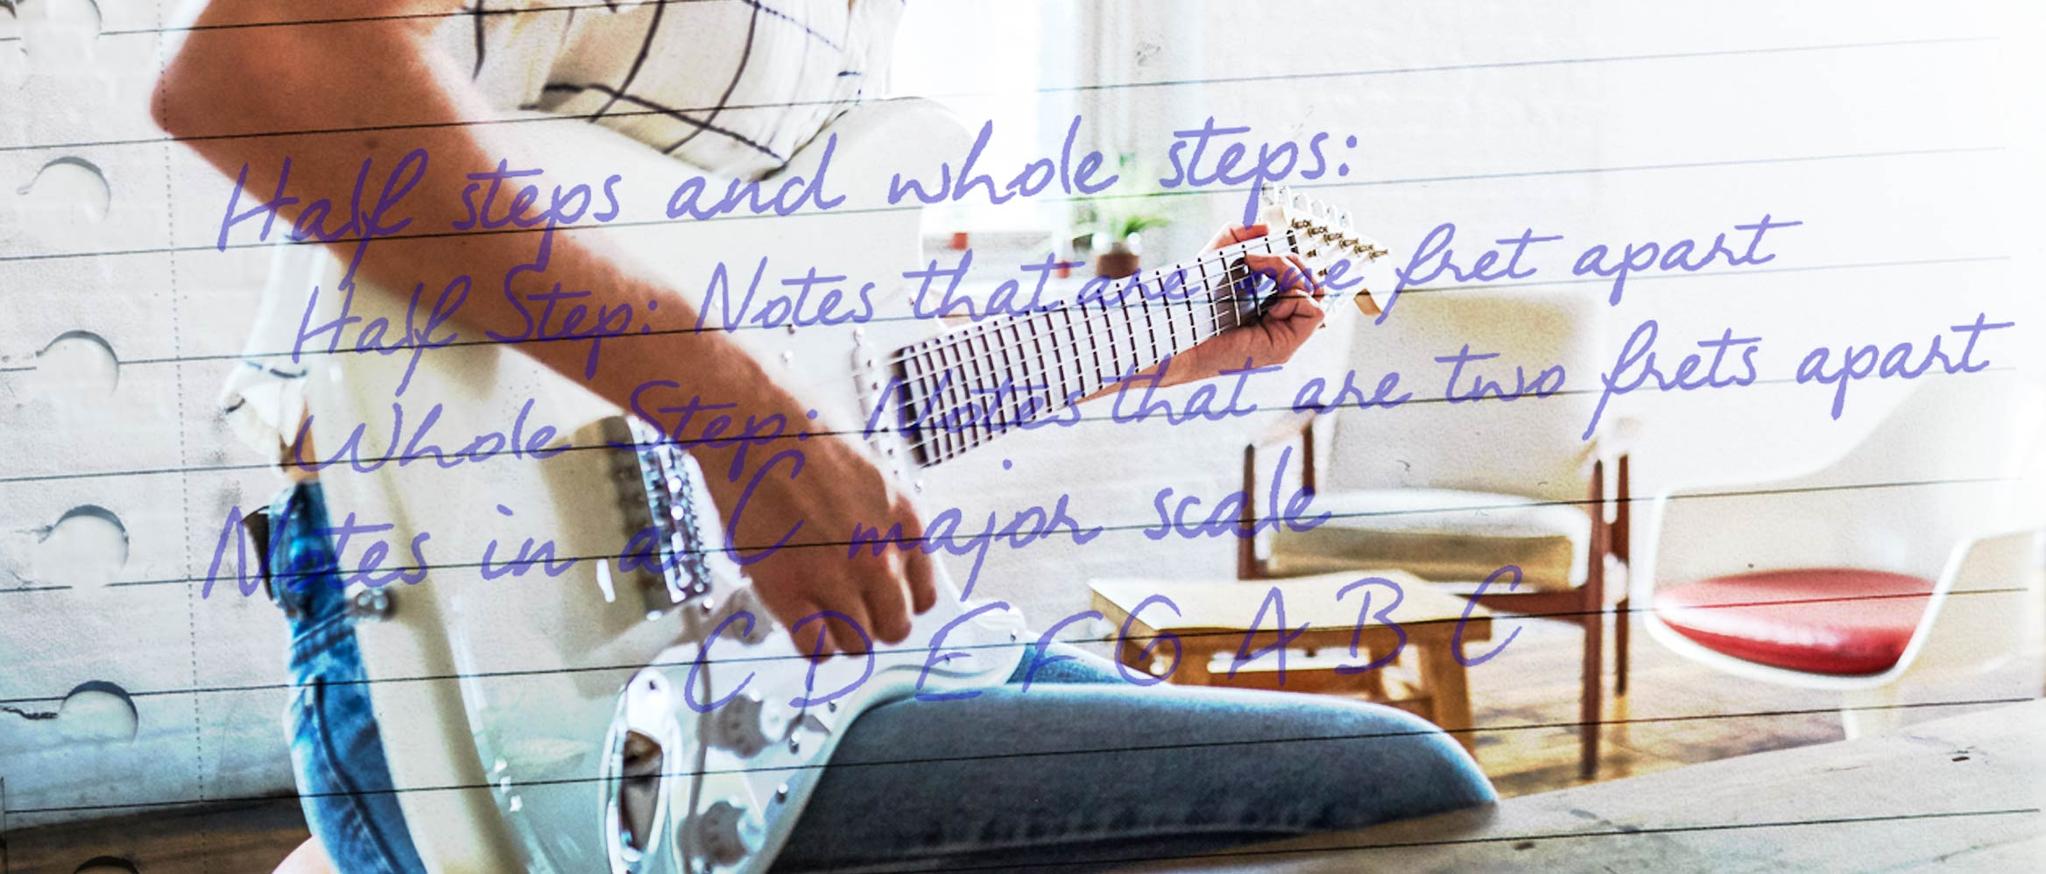 Half steps and whole steps:
Half Step: Notes that are one fret apart
Whole Step: Notes that are two frets apart
Notes in a C major scale
C D E F G A B C